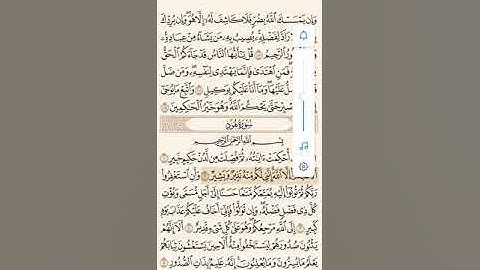 وَإِن يَمْسَسْكَ ٱللَّهُ بِضُرٍّ فَلَا كَاشِفَ لَهُۥٓ إِلَّا هُوَ وَإِن يُرِدْكَ
رَآدَّ لِفَضْلِهِۦ يُصِيبُ بِهِۦ مَن يَشَآءُ مِنْ عِبَادِهِۦ
ٱلرَّحِيمُ ١٠٧ قُلْ يَٰٓأَيُّهَا ٱلنَّاسُ قَدْ جَآءَكُمُ ٱلْحَقُّ
فَمَنِ ٱهْتَدَىٰ فَإِنَّمَا يَهْتَدِى لِنَفْسِهِۦ وَمَن ضَلَّ
عَلَيْهَا وَمَآ أَنَا۠ عَلَيْكُم بِوَكِيلٍ ١٠٨ وَٱتَّبِعْ مَا يُوحَىٰٓ
حَتَّىٰ يَحْكُمَ ٱللَّهُ وَهُوَ خَيْرُ ٱلْحَٰكِمِينَ ١٠٩
سُورَةُ هُودٍ
بِسْمِ ٱللَّهِ ٱلرَّحْمَٰنِ ٱلرَّحِيمِ
أُحْكِمَتْ ءَايَٰتُهُۥ ثُمَّ فُصِّلَتْ مِن لَّدُنْ حَكِيمٍ خَبِيرٍ ١
إِلَّا ٱللَّهَ إِنَّنِى لَكُم مِّنْهُ نَذِيرٌ وَبَشِيرٌ ٢ وَأَنِ ٱسْتَغْفِرُوا۟
رَبَّكُمْ ثُمَّ تُوبُوٓا۟ إِلَيْهِ يُمَتِّعْكُم مَّتَٰعًا حَسَنًا إِلَىٰٓ أَجَلٍ مُّسَمًّى وَيُؤْتِ
كُلَّ ذِى فَضْلٍ فَضْلَهُۥ وَإِن تَوَلَّوْا۟ فَإِنِّىٓ أَخَافُ عَلَيْكُمْ عَذَابَ يَوْمٍ
كَبِيرٍ ٣ إِلَى ٱللَّهِ مَرْجِعُكُمْ وَهُوَ عَلَىٰ كُلِّ شَىْءٍ قَدِيرٌ ٤ أَلَآ إِنَّهُمْ
يَثْنُونَ صُدُورَهُمْ لِيَسْتَخْفُوا۟ مِنْهُ أَلَا حِينَ يَسْتَغْشُونَ ثِيَابَهُمْ
يَعْلَمُ مَا يُسِرُّونَ وَمَا يُعْلِنُونَ إِنَّهُۥ عَلِيمٌۢ بِذَاتِ ٱلصُّدُورِ ٥